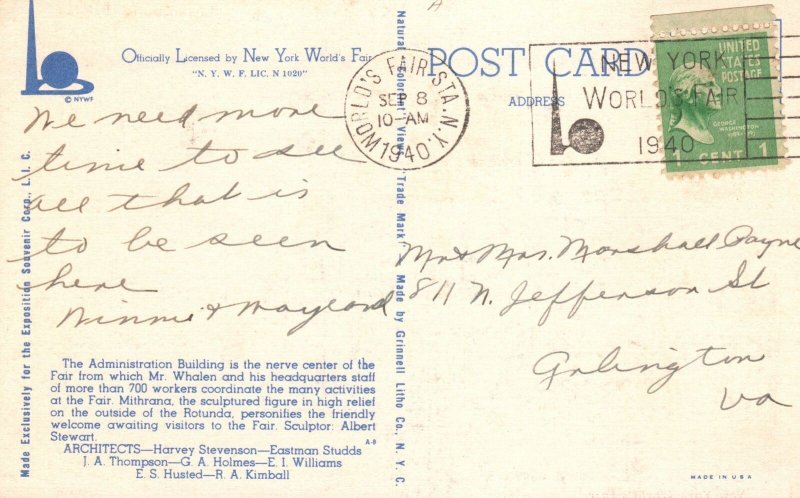 Officially Licensed by New York World's Fair
"N. Y. W. F. LIC. N 1020"
© NYWF
We need more
time to see
all that is
to be seen
here
Winnie & Maylord
The Administration Building is the nerve center of the
Fair from which Mr. Whalen and his headquarters staff
of more than 700 workers coordinate the many activities
at the Fair. Mithrana, the sculptured figure in high relief
on the outside of the Rotunda, personifies the friendly
welcome awaiting visitors to the Fair. Sculptor: Albert
Stewart.
A-8
ARCHITECTS—Harvey Stevenson—Eastman Studds
J. A. Thompson—G. A. Holmes—E. I. Williams
E. S. Husted—R. A. Kimball
Made Exclusively for the Exposition Souvenir Corp., L. I. C.
Natural Color Views Trade Mark Made by Grinnell Litho Co., N. Y. C.
POST CARD
ADDRESS
WORLD'S FAIR STA. N.Y.
SEP 8
10-AM
1940
NEW YORK
WORLD'S FAIR
1940
UNITED
STATES
POSTAGE
GEORGE
WASHINGTON
1 CENT 1
Mr & Mrs. Marshall Payne
811 N. Jefferson St
Arlington
Va
MADE IN USA